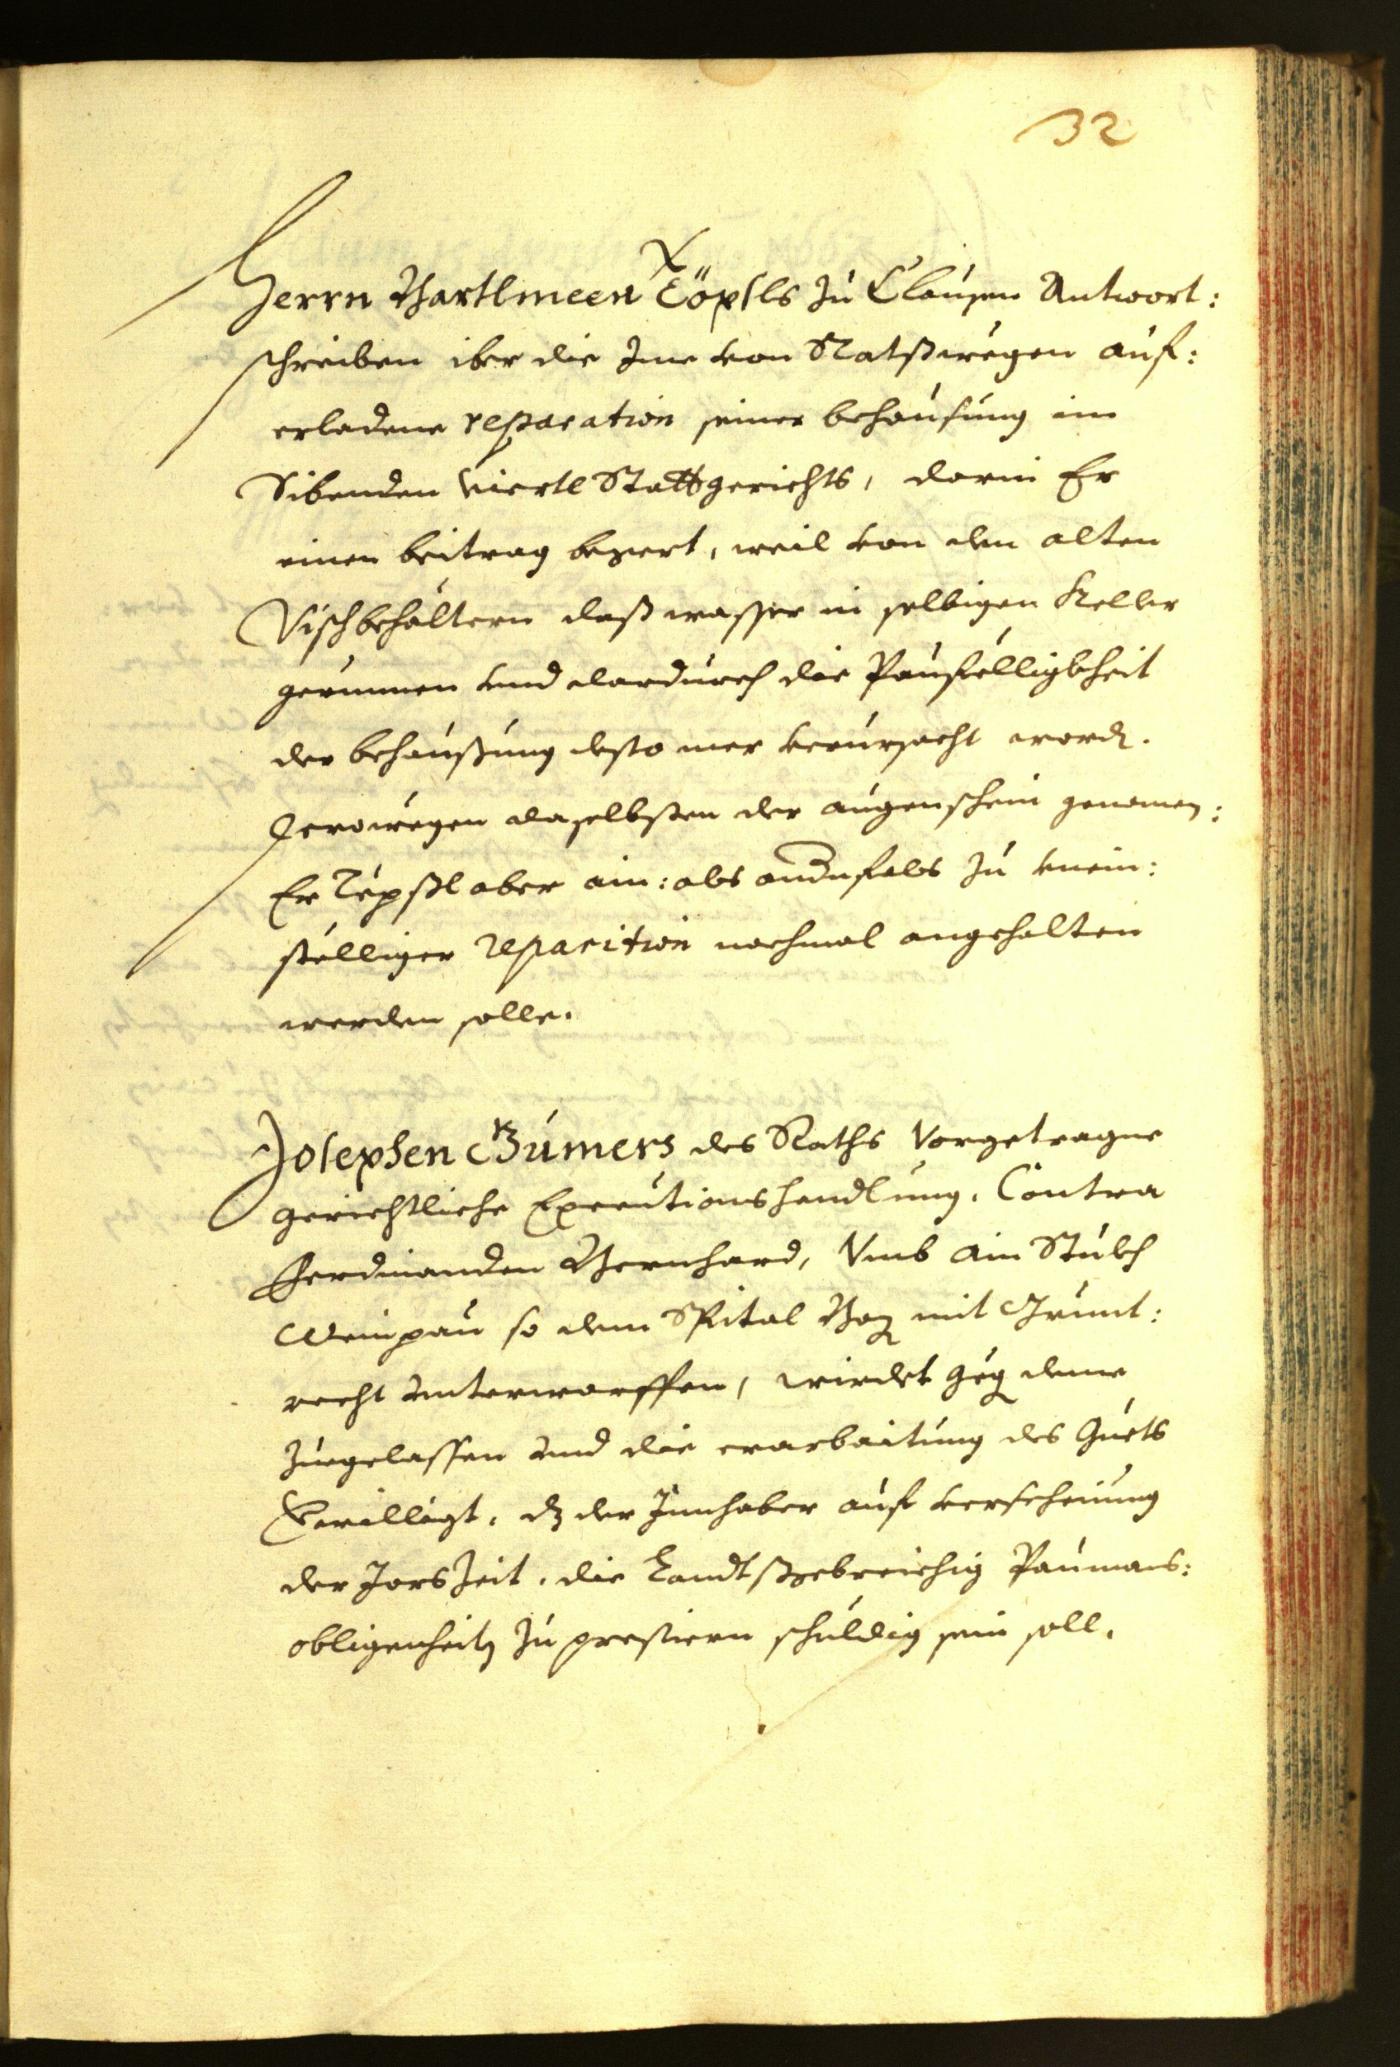 32
Herrn Bartlmeen Töpsls zu Clausen Antwort:
schreiben iber die Ime von Ratßwegen auf:
erladene reparation seiner behausung im
Sibenden viertl Stattgerichts, darin Er
einen beitrag begert, weil von den alten
Vischbehältern daß wasser in selbigen Keller
gerunnen vnd dardurch die Paufelligkheit
der behaußung desto mer verursacht word.
Derowegen daselbsten der augenschein genomen:
Er Tepßl aber ain: als andnfals zu vnein:
stelliger reparition nochmal angehalten
werden solle.
Josephen Gumers des Raths Vorgetragne
gerichtliche Executionshandlung. Contra
Ferdinanden Bernhard, Vmb ain Stukh
Weinpau so dem Spital Boz mit Grunt:
recht vnterworffen, wirdet geg deme
zuegelassen vnd die erarbaitung des Guets
Bewilligt. dz der Innhaber auf verscheinung
der Jors Zeit. die Landtßgebreichig Paumans:
obligenheit zu prestiern schuldig sein soll.